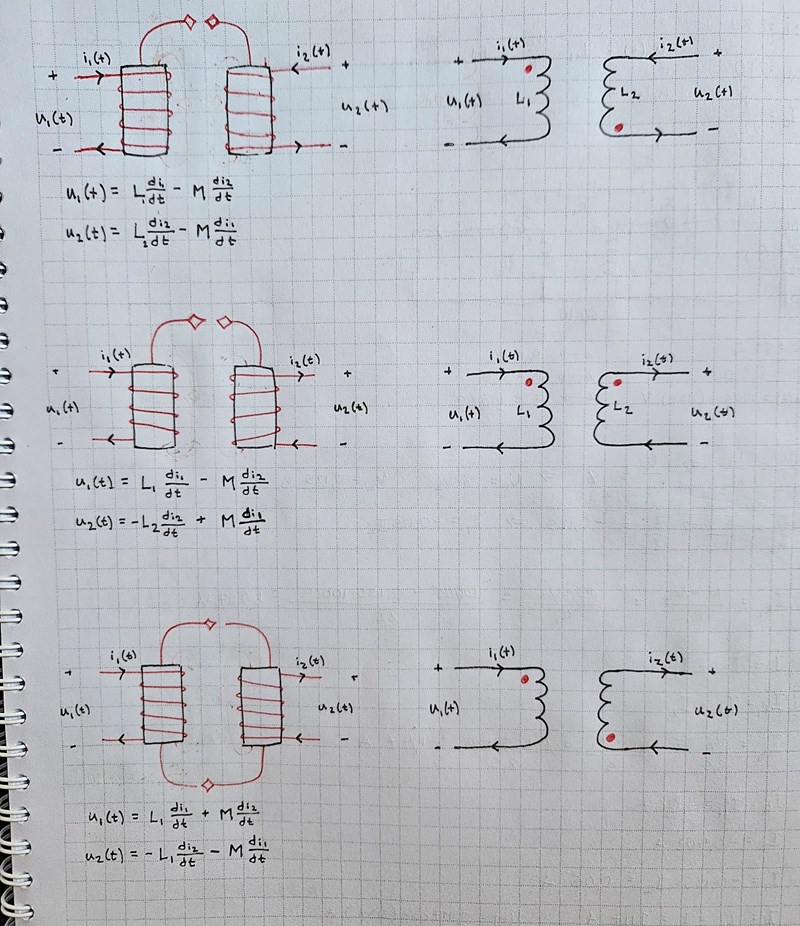 i₁(t) i₂(t) i₁(t) i₂(t)
+ + + +
u₁(t) u₂(t) u₁(t) L₁ L₂ u₂(t)
- - - -
u₁(t) = L₁ di₁/dt - M di₂/dt
u₂(t) = L₂ di₂/dt - M di₁/dt
i₁(t) i₂(t) i₁(t) i₂(t)
+ + + +
u₁(t) u₂(t) u₁(t) L₁ L₂ u₂(t)
- - - -
u₁(t) = L₁ di₁/dt - M di₂/dt
u₂(t) = -L₂ di₂/dt + M di₁/dt
i₁(t) i₂(t) i₁(t) i₂(t)
+ + + +
u₁(t) u₂(t) u₁(t) u₂(t)
- - - -
u₁(t) = L₁ di₁/dt + M di₂/dt
u₂(t) = -L₁ di₂/dt - M di₁/dt